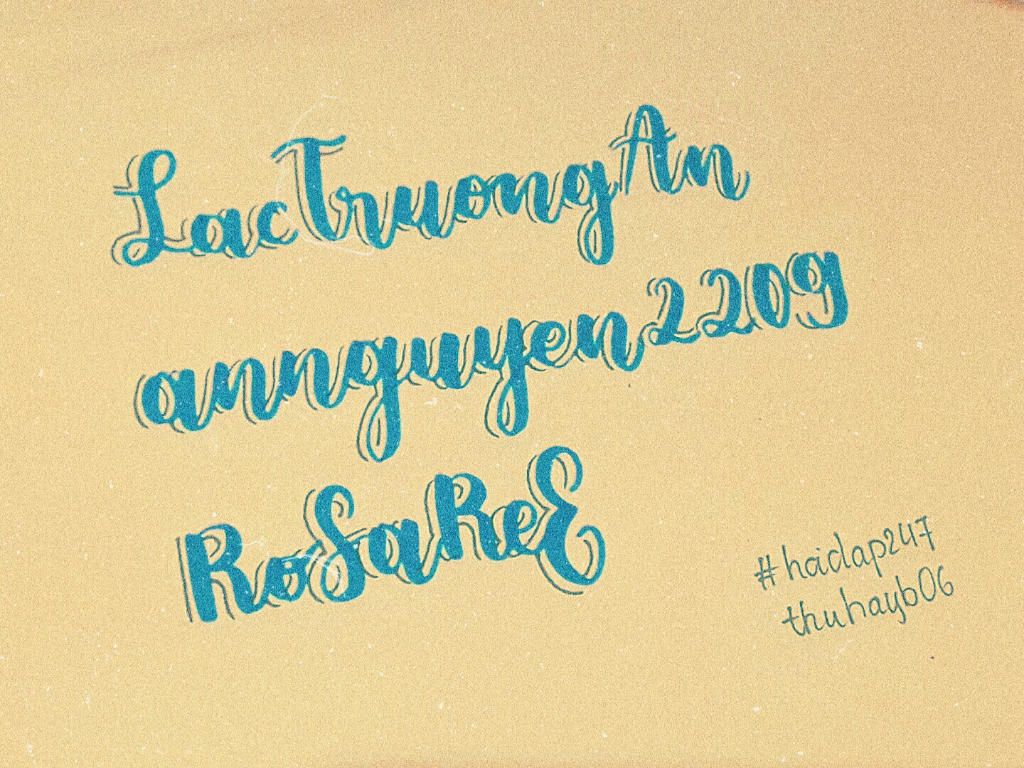 LacTruongAn
annguyen2209
RoSaReE
#hoidap247
thuhayb06